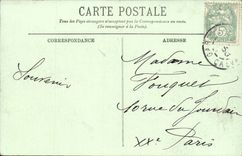 CARTE POSTALE
Tous les Pays étrangers n'acceptent pas la Correspondance au recto.
(Se renseigner à la Poste).
CORRESPONDANCE
ADRESSE
Souvenir
Madame
Fouquet
10 rue du Jourdain
XXe Paris
5